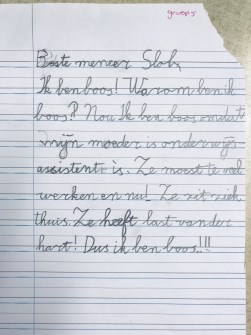 groep 5
Beste meneer Slob,
Ik ben boos! Warom ben ik
boos?! Nou Ik ben boos omdat
mijn moeder is onderwijs
assistent is. Ze moest te veel
werken en nu! Ze zit ziek
thuis. Ze heeft last van der
hart! Dus ik ben boos!!!